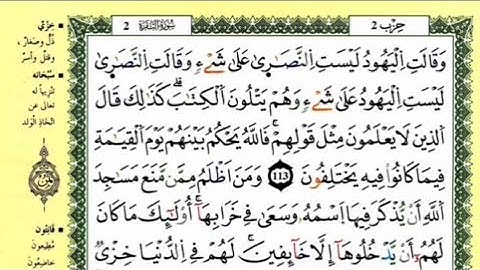 حِزْب 2
سُورَةُ الْبَقَرَةِ 2
وَقَالَتِ اِلْيَهُودُ لَيْسَتِ اِلنَّصَٰرَىٰ عَلَىٰ شَےْءٖ وَقَالَتِ اِلنَّصَٰرَىٰ
لَيْسَتِ اِلْيَهُودُ عَلَىٰ شَےْءٖ وَهُمْ يَتْلُونَ اَلْكِتَٰبَۖ كَذَٰلِكَ قَالَ
اَلذِينَ لَا يَعْلَمُونَ مِثْلَ قَوْلِهِمْۖ فَاللَّهُ يَحْكُمُ بَيْنَهُمْ يَوْمَ اَلْقِيَٰمَةِ
فِيمَا كَانُوا۟ فِيهِ يَخْتَلِفُونَ 113 وَمَنَ اَظْلَمُ مِمَّن مَّنَعَ مَسَٰجِدَ
اَللَّهِ أَنْ يُّذْكَرَ فِيهَا اَسْمُهُۥ وَسَعَىٰ فِي خَرَابِهَاۖ أُوْلَٰٓئِكَ مَا كَانَ
لَهُمُۥٓ أَنْ يَّدْخُلُوهَآ إِلَّا خَآئِفِينَۖ لَهُمْ فِي اِلدُّنْيَا خِزْيٌ
خِزْيٌ
ذُلٌّ وصَغَارٌ،
وقَتْلٌ وأسْرٌ
سُبْحَانَه
تَنْزِيهًا له
تعالى عن
اتِّخَاذِ الوَلَدِ
قَانِتُون
مُطِيعُون
خَاضِعُون